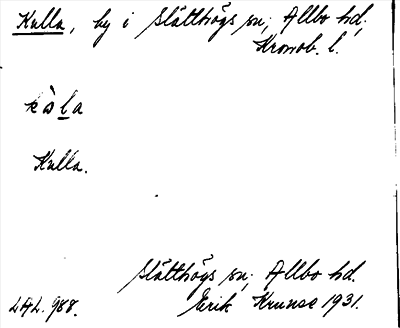 Kulla, by i Slätthögs sn, Allbo hd,
Kronob. l.
kùl̲a
Kulla.
Slätthögs sn, Allbo hd.
LAL. 988. Erik Krunse 1931.